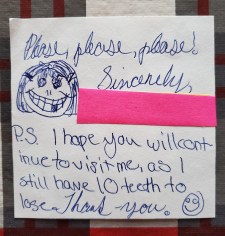 Please, please, please!
Sincerely,
P.S. I hope you will cont
inue to visit me, as I
still have 10 teeth to
lose. Thank-you.